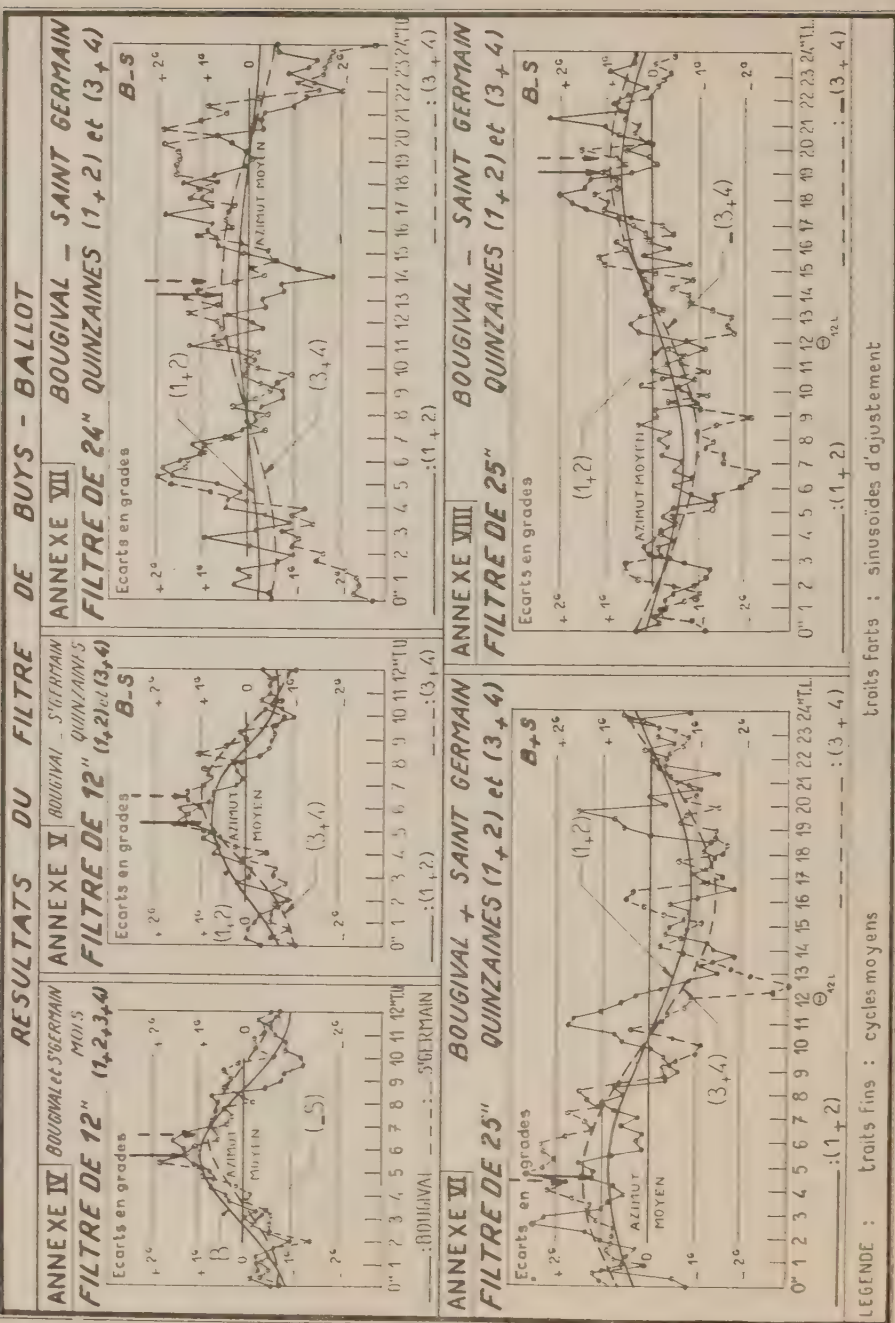 RESULTATS DU FILTRE DE BUYS - BALLOT
ANNEXE IV BOUGIVAL et St GERMAIN
MOIS
FILTRE DE 12h (1+2+3+4)
Ecarts en grades
+2G
+2G
+1G
+1G
0
0
AZIMUT
MOYEN
-1G
-1G
-2G
-2G
(B
(_S)
0h 1 2 3 4 5 6 7 8 9 10 11 12h T.U
____:BOUGIVAL _ _ _:_ S'GERMAIN
ANNEXE V BOUGIVAL _ S'GERMAIN
FILTRE DE 12h QUINZAINES (1+2) et (3+4)
Ecarts en grades
B_S
+2G
+2G
+1G
+1G
(1+2)
0
0
AZIMUT
MOYEN
-1G
-2G
-2G
(3+4)
0h 1 2 3 4 5 6 7 8 9 10 11 12h T.U
____:(1+2) _ _ _:(3+4)
ANNEXE VII BOUGIVAL _ SAINT GERMAIN
FILTRE DE 24h QUINZAINES (1+2) et (3+4)
Ecarts en grades
B_S
+2G
+2G
+1G
+1G
(1+2)
0
AZIMUT MOYEN
-1G
-1G
-2G
-2G
(3+4)
0h 1 2 3 4 5 6 7 8 9 10 11 12 13 14 15 16 17 18 19 20 21 22 23 24h T.U
____:(1+2) _ _ _ _ _:(3+4)
ANNEXE VI BOUGIVAL + SAINT GERMAIN
FILTRE DE 25h QUINZAINES (1+2) et (3+4)
Ecarts en grades
B+S
+2G
+2G
+1G
(1+2)
0
0
AZIMUT
MOYEN
-1G
-1G
-2G
-2G
(3+4)
0h 1 2 3 4 5 6 7 8 9 10 11 12 13 14 15 16 17 18 19 20 21 22 23 24h T.L.
12L
____:(1+2) _ _ _ _ _:(3+4)
ANNEXE VIII BOUGIVAL _ SAINT GERMAIN
FILTRE DE 25h QUINZAINES (1+2) et (3+4)
Ecarts en grades
B_S
+2G
+2G
+1G
+1G
(1+2)
0
AZIMUT MOYEN
-1G
-1G
-2G
-2G
_(3+4)
0h 1 2 3 4 5 6 7 8 9 10 11 12 13 14 15 16 17 18 19 20 21 22 23 24h T.L.
12L
____:(1+2) _ _ _ _ _:_(3+4)
LEGENDE : traits fins : cycles moyens traits forts : sinusoïdes d'ajustement